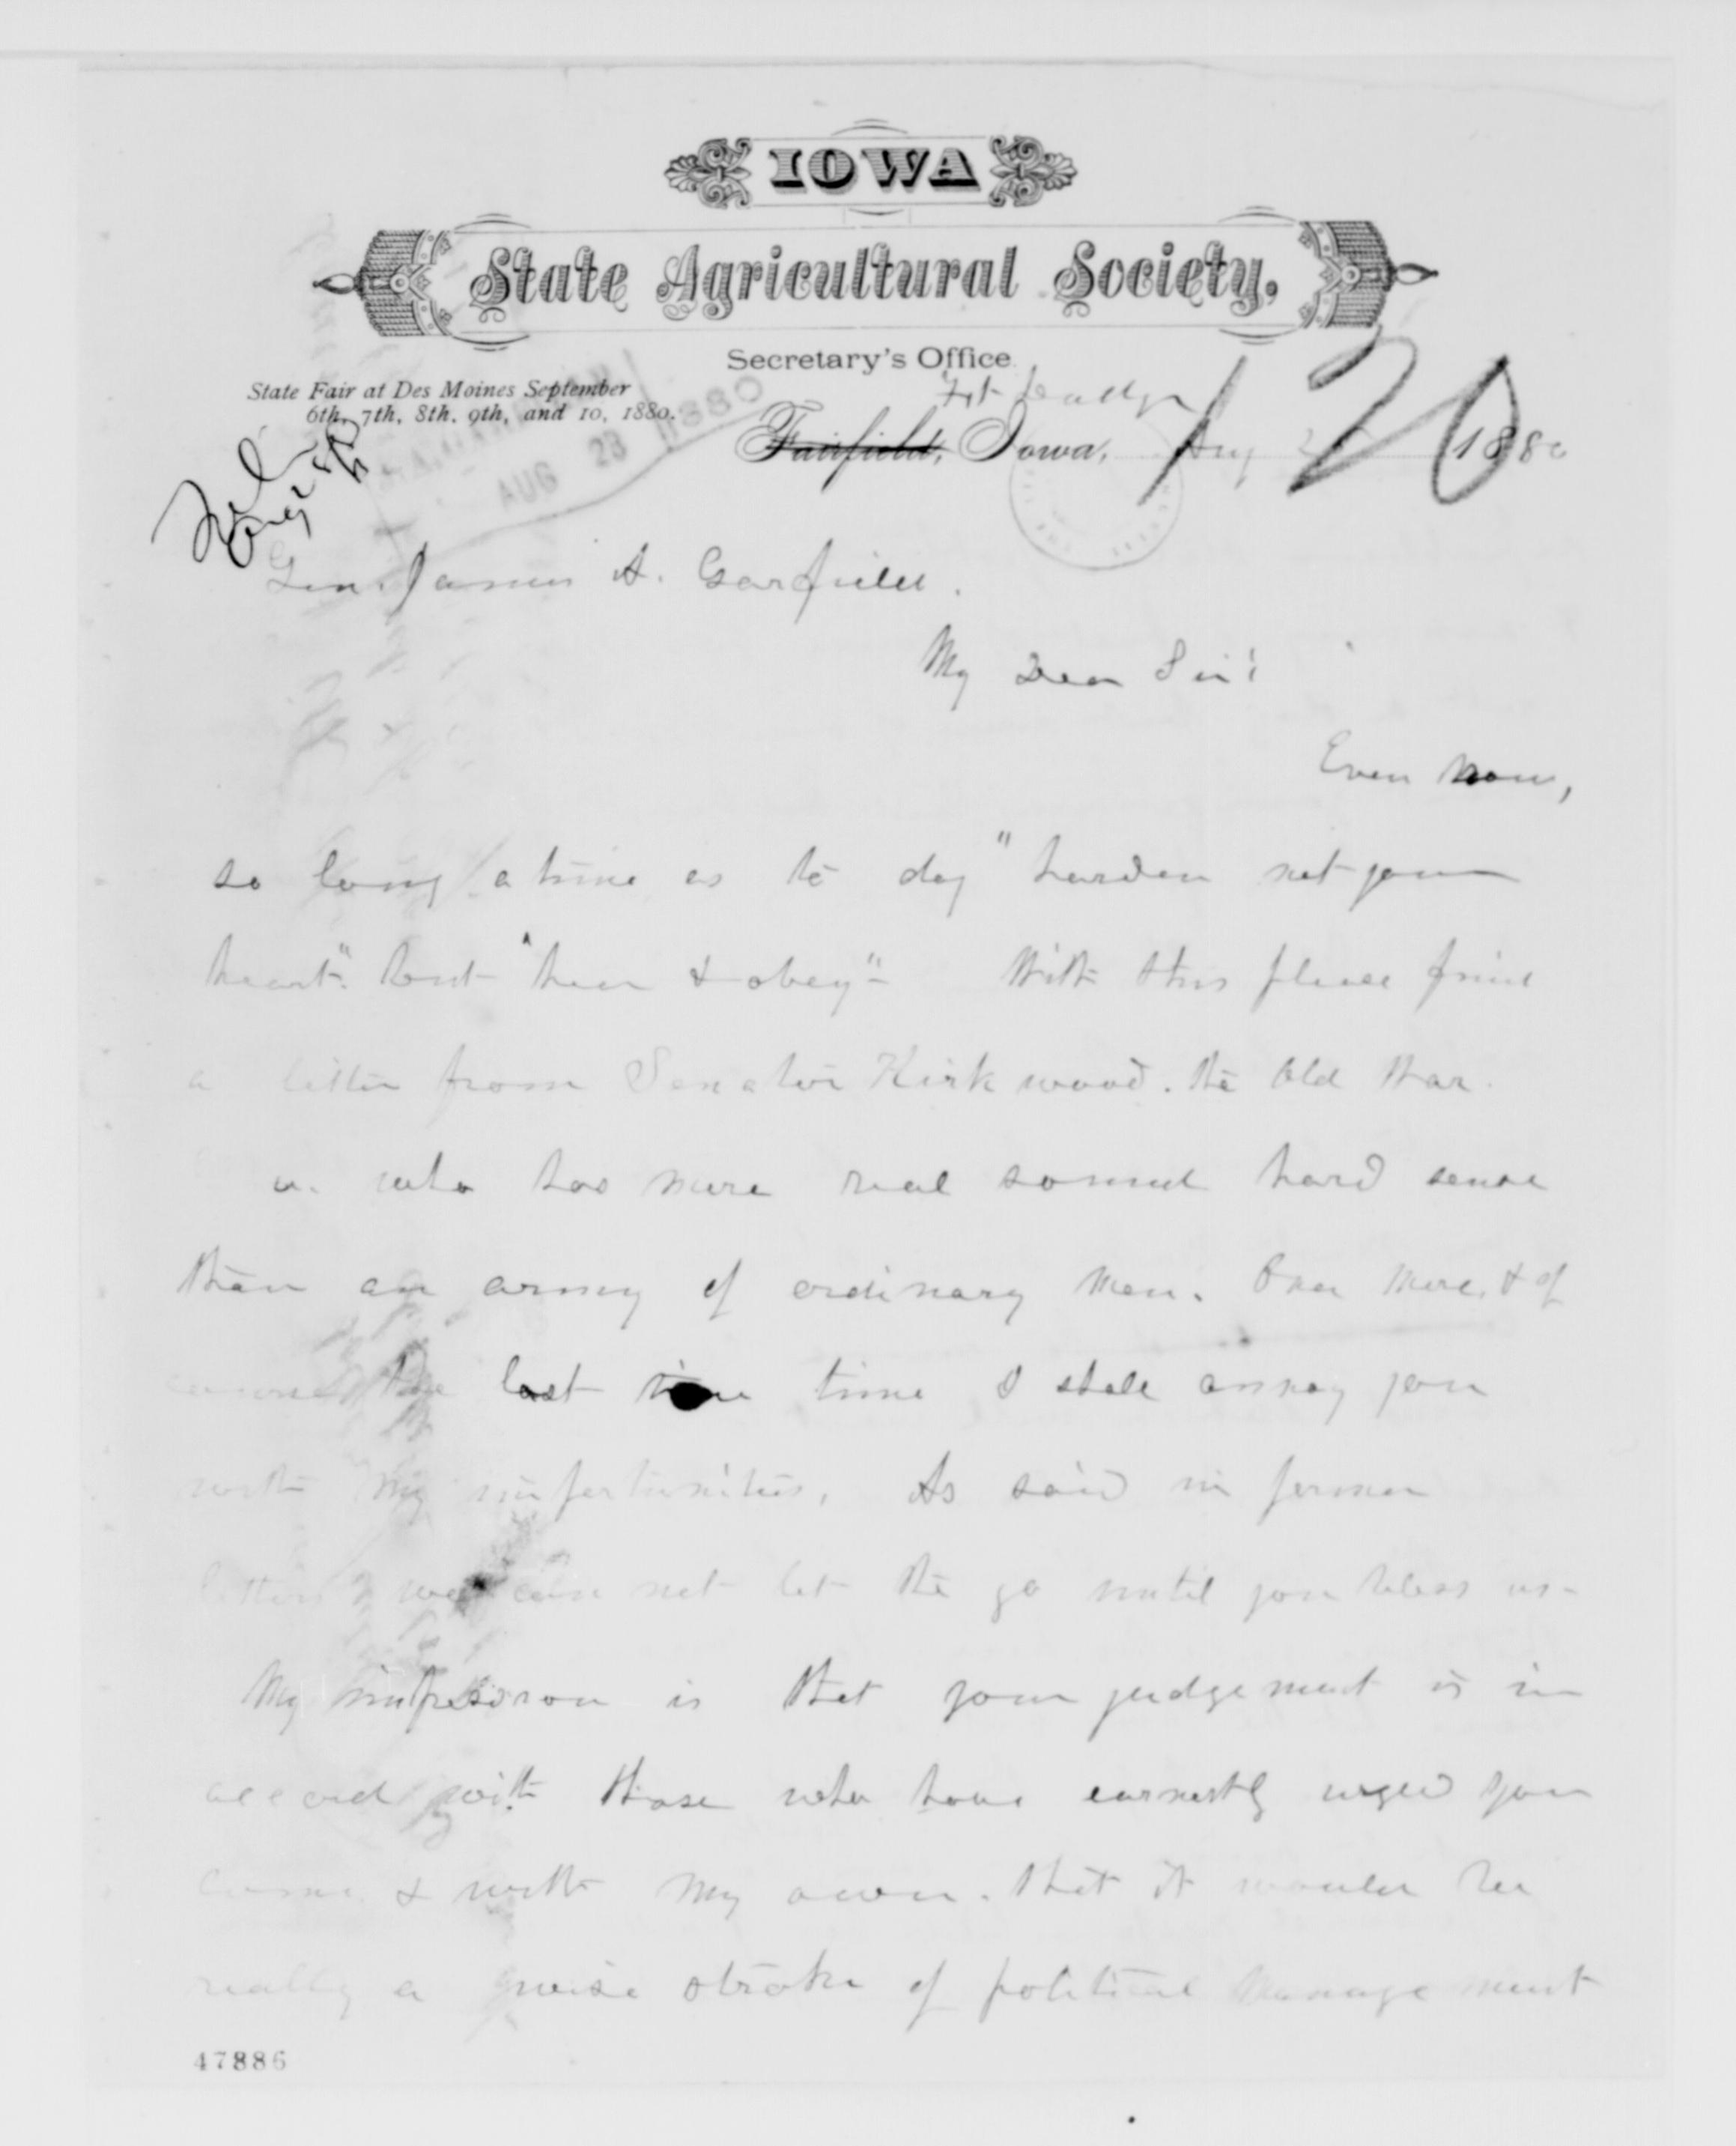 IOWA
State Agricultural Society,
Secretary's Office
State Fair at Des Moines September
6th, 7th, 8th, 9th, and 10, 1880.
AUG 23 1880
Ft Dodge
Fairfield, Iowa, Aug 20 1880
Gen. James A. Garfield.
My Dear Sir:
Even now,
so long a time as to day "harden not your
heart" but "hear & obey"- With this please find
a letter from Senator Kirkwood. the Old War
who has more real sound hard sense
than an army of ordinary men. Once more, & of
course the last time time I shall annoy you
with my importunities, As said in former
letters we can not let the go until you bless us-
My impression is that your judgement is in
accord with those who have earnestly urged you
come & with my own. that it would be
really a wise stroke of political management
47886